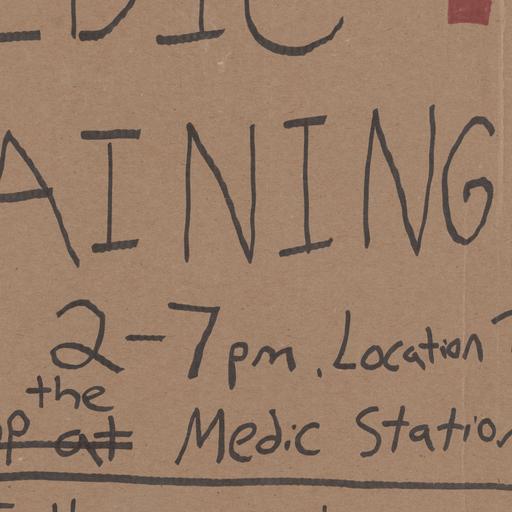 EDIC
AINING
2-7pm. Location T
the
op at Medic Station